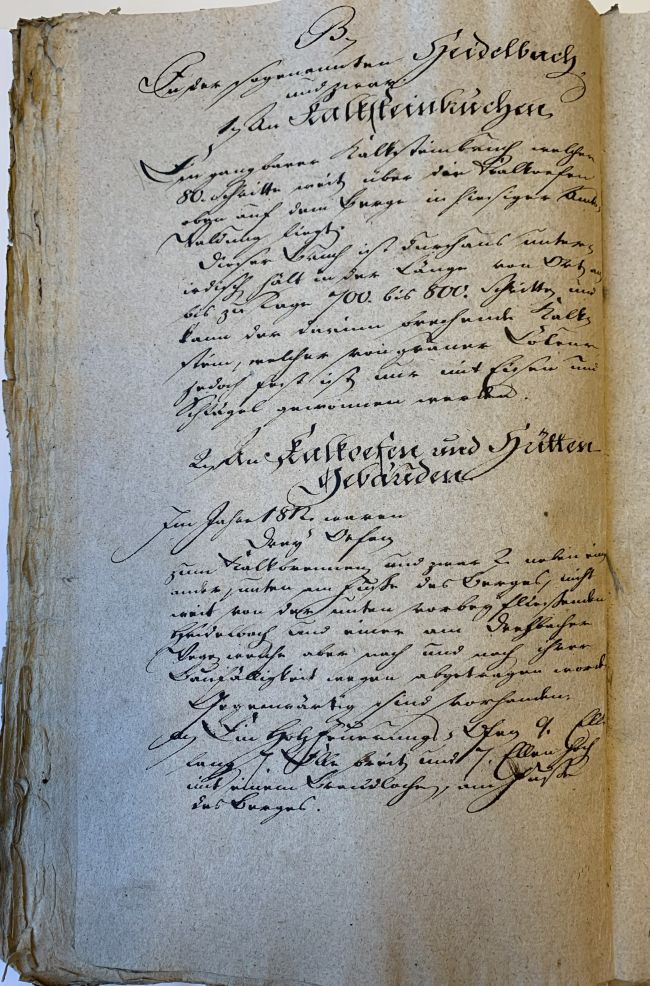 B,
In der sogenannten Heidelbach,
und zwar:
1, An Kalksteinbrüchen,
Ein gangbarer Kalksteinbruch, welcher
80. Schritte weit über die Kalkoefen
oben auf dem Berge in hiesiger Amts
Waldung liegt.
Dieser Bruch ist durchaus unter-
irdisch, hält in der Länge von Ort an
bis zu Tage 700. bis 800. Schritte, und
kann der darinn brechende Kalk-
stein, welcher von grauer Coleur
jedoch fest ist, nur mit Eisen und
Schlägel gewonnen werden.
2, An Kalkoefen und Hütten
Gebäuden
Im Jahre waren
Drey Oefen
zum Kalkbrennen, und zwar 2. neben ein
ander, unten am Fuße des Berges, nicht
weit von der unten vorbey fliessenden
Heidelbach und einer am
Wege, welche aber nach und nach ihrer
Baufälligkeit wegen abgetragen worden
Gegenwärtig sind vorhanden,
Ein Holz Feuerungs-Ofen 9. Ellen
lang, 7. Elle breit, und 7. Ellen hoch
mit einem, am Fuße
des Berges.